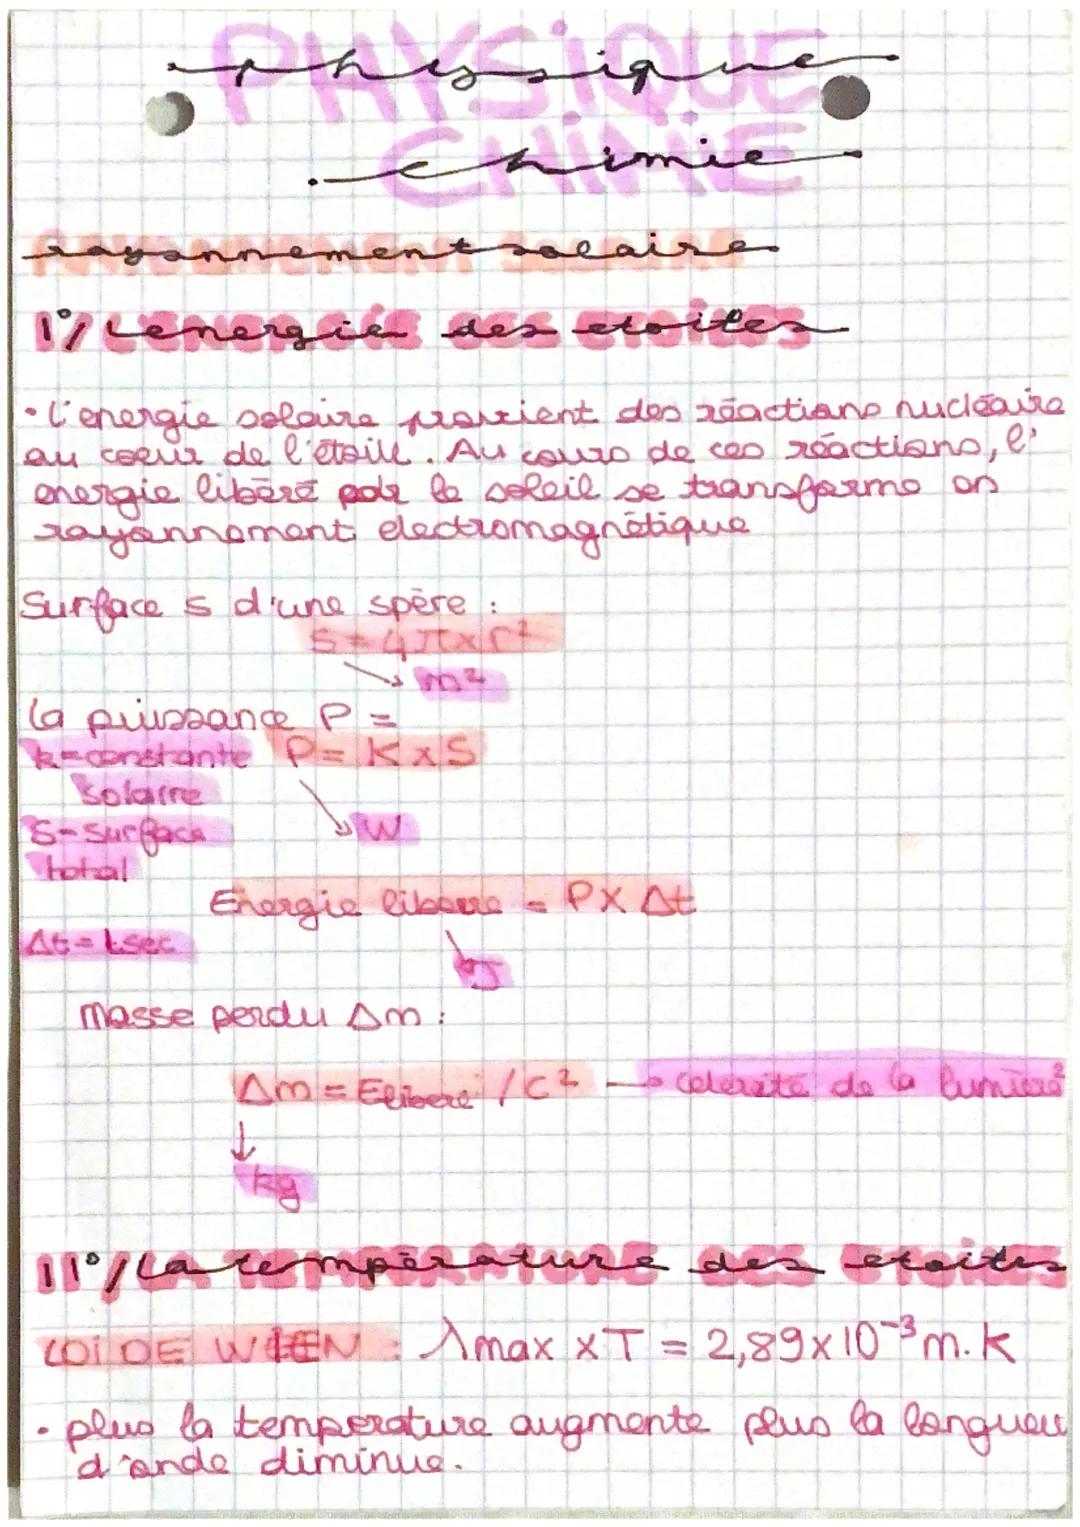 PHYSIQUE
physique
CHIMIE
chimie
rayonnement solaire
1°/ L'energie des etoiles
• L'energie solaire provient des réactions nucléaire
au coeur de l'étoile. Au cours de ces réactions, l'
energie libéré par le soleil se transforme en
rayonnement electromagnétique
Surface s d'une spère :
S = 4π x r²
m²
la puissance P =
k = constante P = K x S
solaire
S - surface W
total
Energie libere = P X Δt
Δt = 1sec
J
Masse perdu Δm :
Δm = Elibere / C² → celerité de la lumière²
kg
11°/ La température des etoiles
LOI DE WIEN : λmax x T = 2,89 x 10⁻³ m.K
• plus la temperature augmente plus la longueur
d'onde diminue.